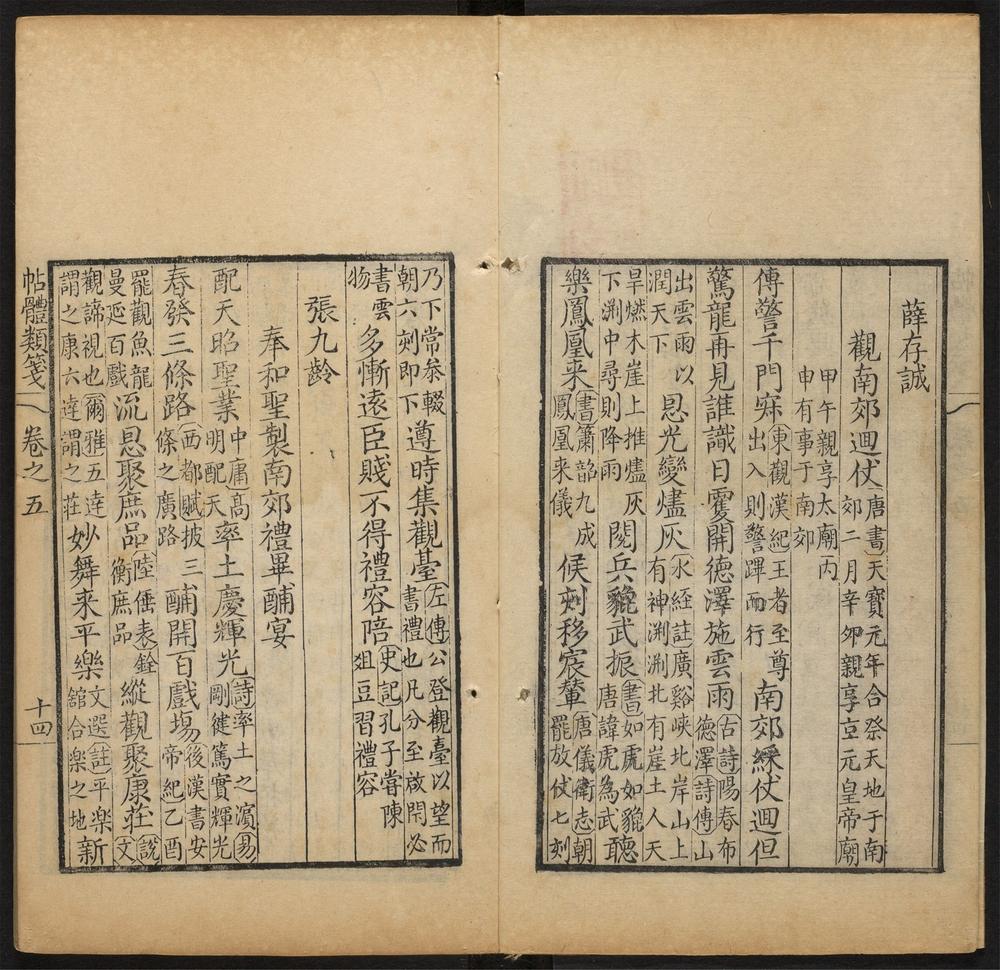 薛存誠
觀南郊迴仗唐書天寶元年合祭天地于南郊二月辛卯親享玄元皇帝廟
甲午親享太廟丙申有事于南郊
傳警千門寂東觀漢紀王者至尊出入則警蹕而行南郊綵仗迴但
驚龍再見誰識日雙開德澤施雲雨古詩陽春布德澤詩傳山
出雲雨以潤天下恩光變燼灰水經註廣谿峽北岸山上有神淵淵北有崖土人天
旱燃木崖上推燼灰下淵中尋則降雨閱兵貔武振書如虎如貔唐諱虎為武聽
樂鳳凰来書簫韶九成鳳凰来儀候刻移宸輦唐儀衛志朝罷放仗七刻
乃下常叅輟朝六刻即下遵時集觀臺左傳公登觀臺以望而書禮也凡分至啟閉必
書雲物多慚遠臣賤不得禮容陪史記孔子嘗陳俎豆習禮容
張九齡
奉和聖製南郊禮畢酺宴
配天昭聖業中庸高明配天率土慶輝光詩率土之濱易剛健篤實輝光
春發三條路西都賦披三條之廣路酺開百戲塲後漢書安帝紀乙酉
罷觀魚龍曼延百戲流恩聚庶品陸倕表銓衡庶品縱觀聚康莊說文
觀諦視也爾雅五達謂之康六達謂之莊妙舞来平樂文選註平樂館合樂之地新
帖體類箋 卷之五 十四